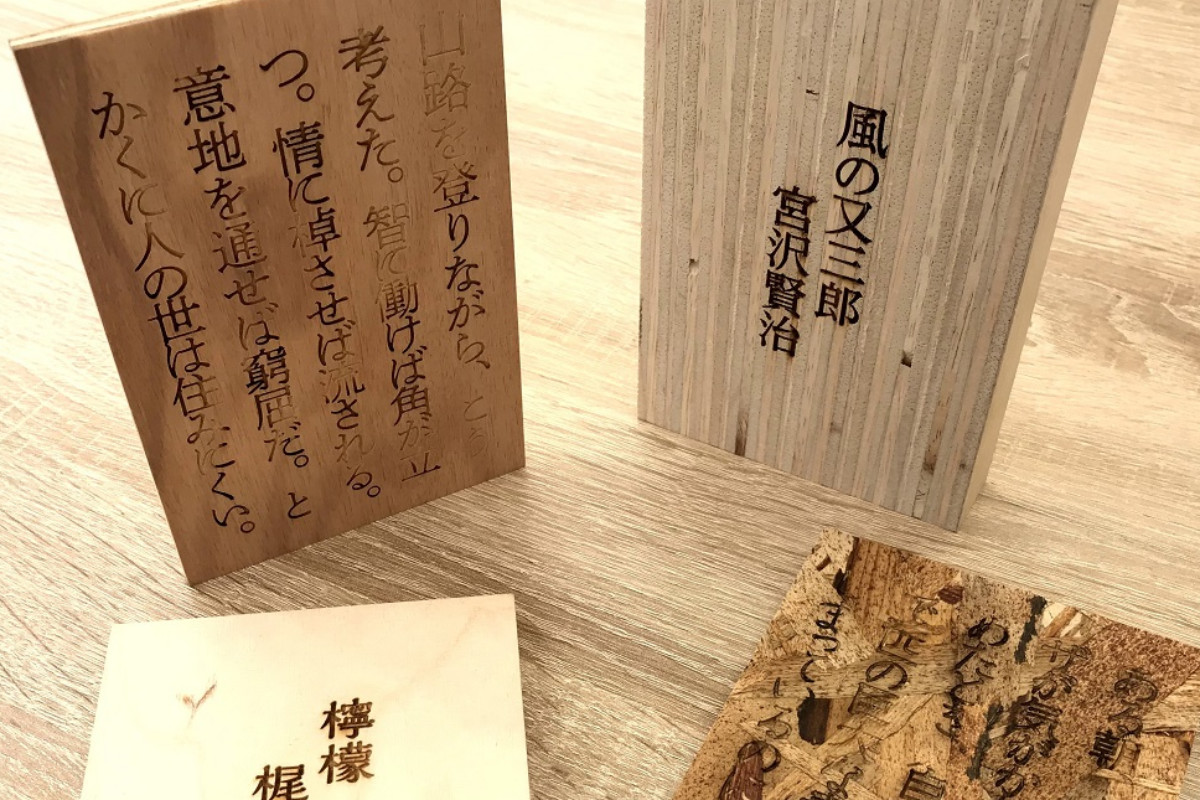 山路を登りながら、こう
考えた。智に働けば角が立
つ。情に棹させば流される。
意地を通せば窮屈だ。と
かくに人の世は住みにくい。
風の又三郎
宮沢賢治
檸檬
梶
ある朝
めたとき
まっている